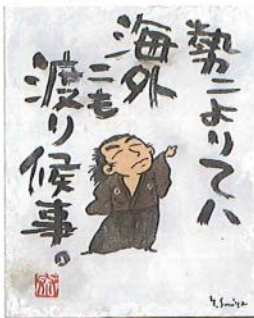 勢ニよりてハ
海外
ニも
渡り候事。